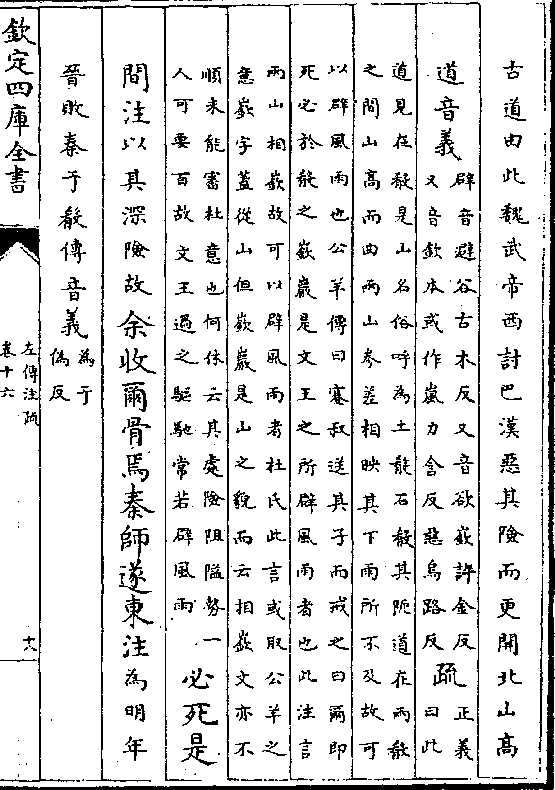 古道由此魏武帝西討巴漢惡其險而更開北山高
道音義
辟音避谷古木反又音欲嶔許金反
又音欽本或作嵐力含反惡烏路反
疏
正義
曰此
道見在殽是山名俗呼為土殽石殽其阨道在兩殽
之間山高而曲兩山參差相映其下雨所不及故可
以辟風雨也公羊傳曰蹇叔送其子而戒之曰爾即
死必於殽之嶔巖是文王之所辟風雨者也此注言
兩山相嶔故可以辟風雨者杜氏此言或取公羊之
意嶔字蓋從山但嶔巖是山之貌而云相嶔文亦不
順未能審杜意也何休云其處險阻隘勢一
人可要百故文王過之驅馳常若辟風雨
必死是
間注以其深險故余收爾骨焉秦師遂東注為明年
晉敗秦于殽傳音義
為于
偽反
欽定四庫全書
左傳注疏
卷十六
十八